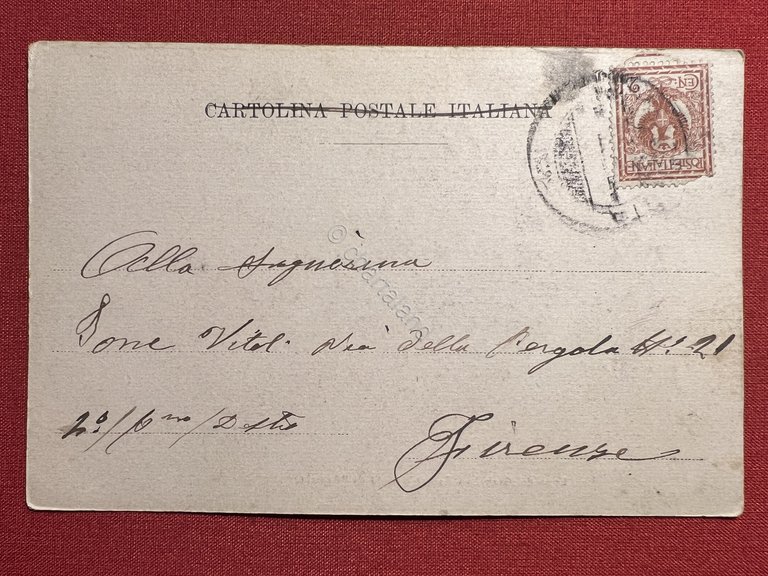 CARTOLINA POSTALE ITALIANA
POSTE ITALIANE
Alla Signorina
Vitol. Via della Pergola N° 21
2°/ /Destro
Firenze